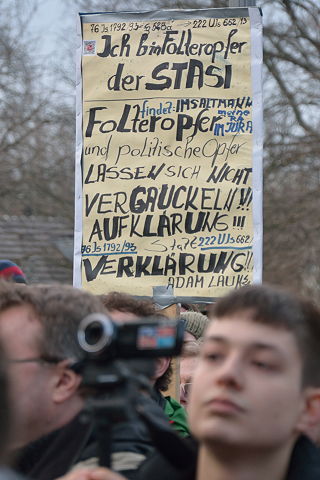 76 Js 1792 93 222 UJs 662/13
Ich bin Folteropfer
der STASI
findet: IM SALTMANN
Folteropfer IM JURA
und politische Opfer
LASSEN SICH NICHT
VERGAUCKELN!!!
AUFKLÄRUNG!!!
76 Js 1792/93 Statt 222 UJs 662/
VERKLÄRUNG!!
ADAM LAUKS